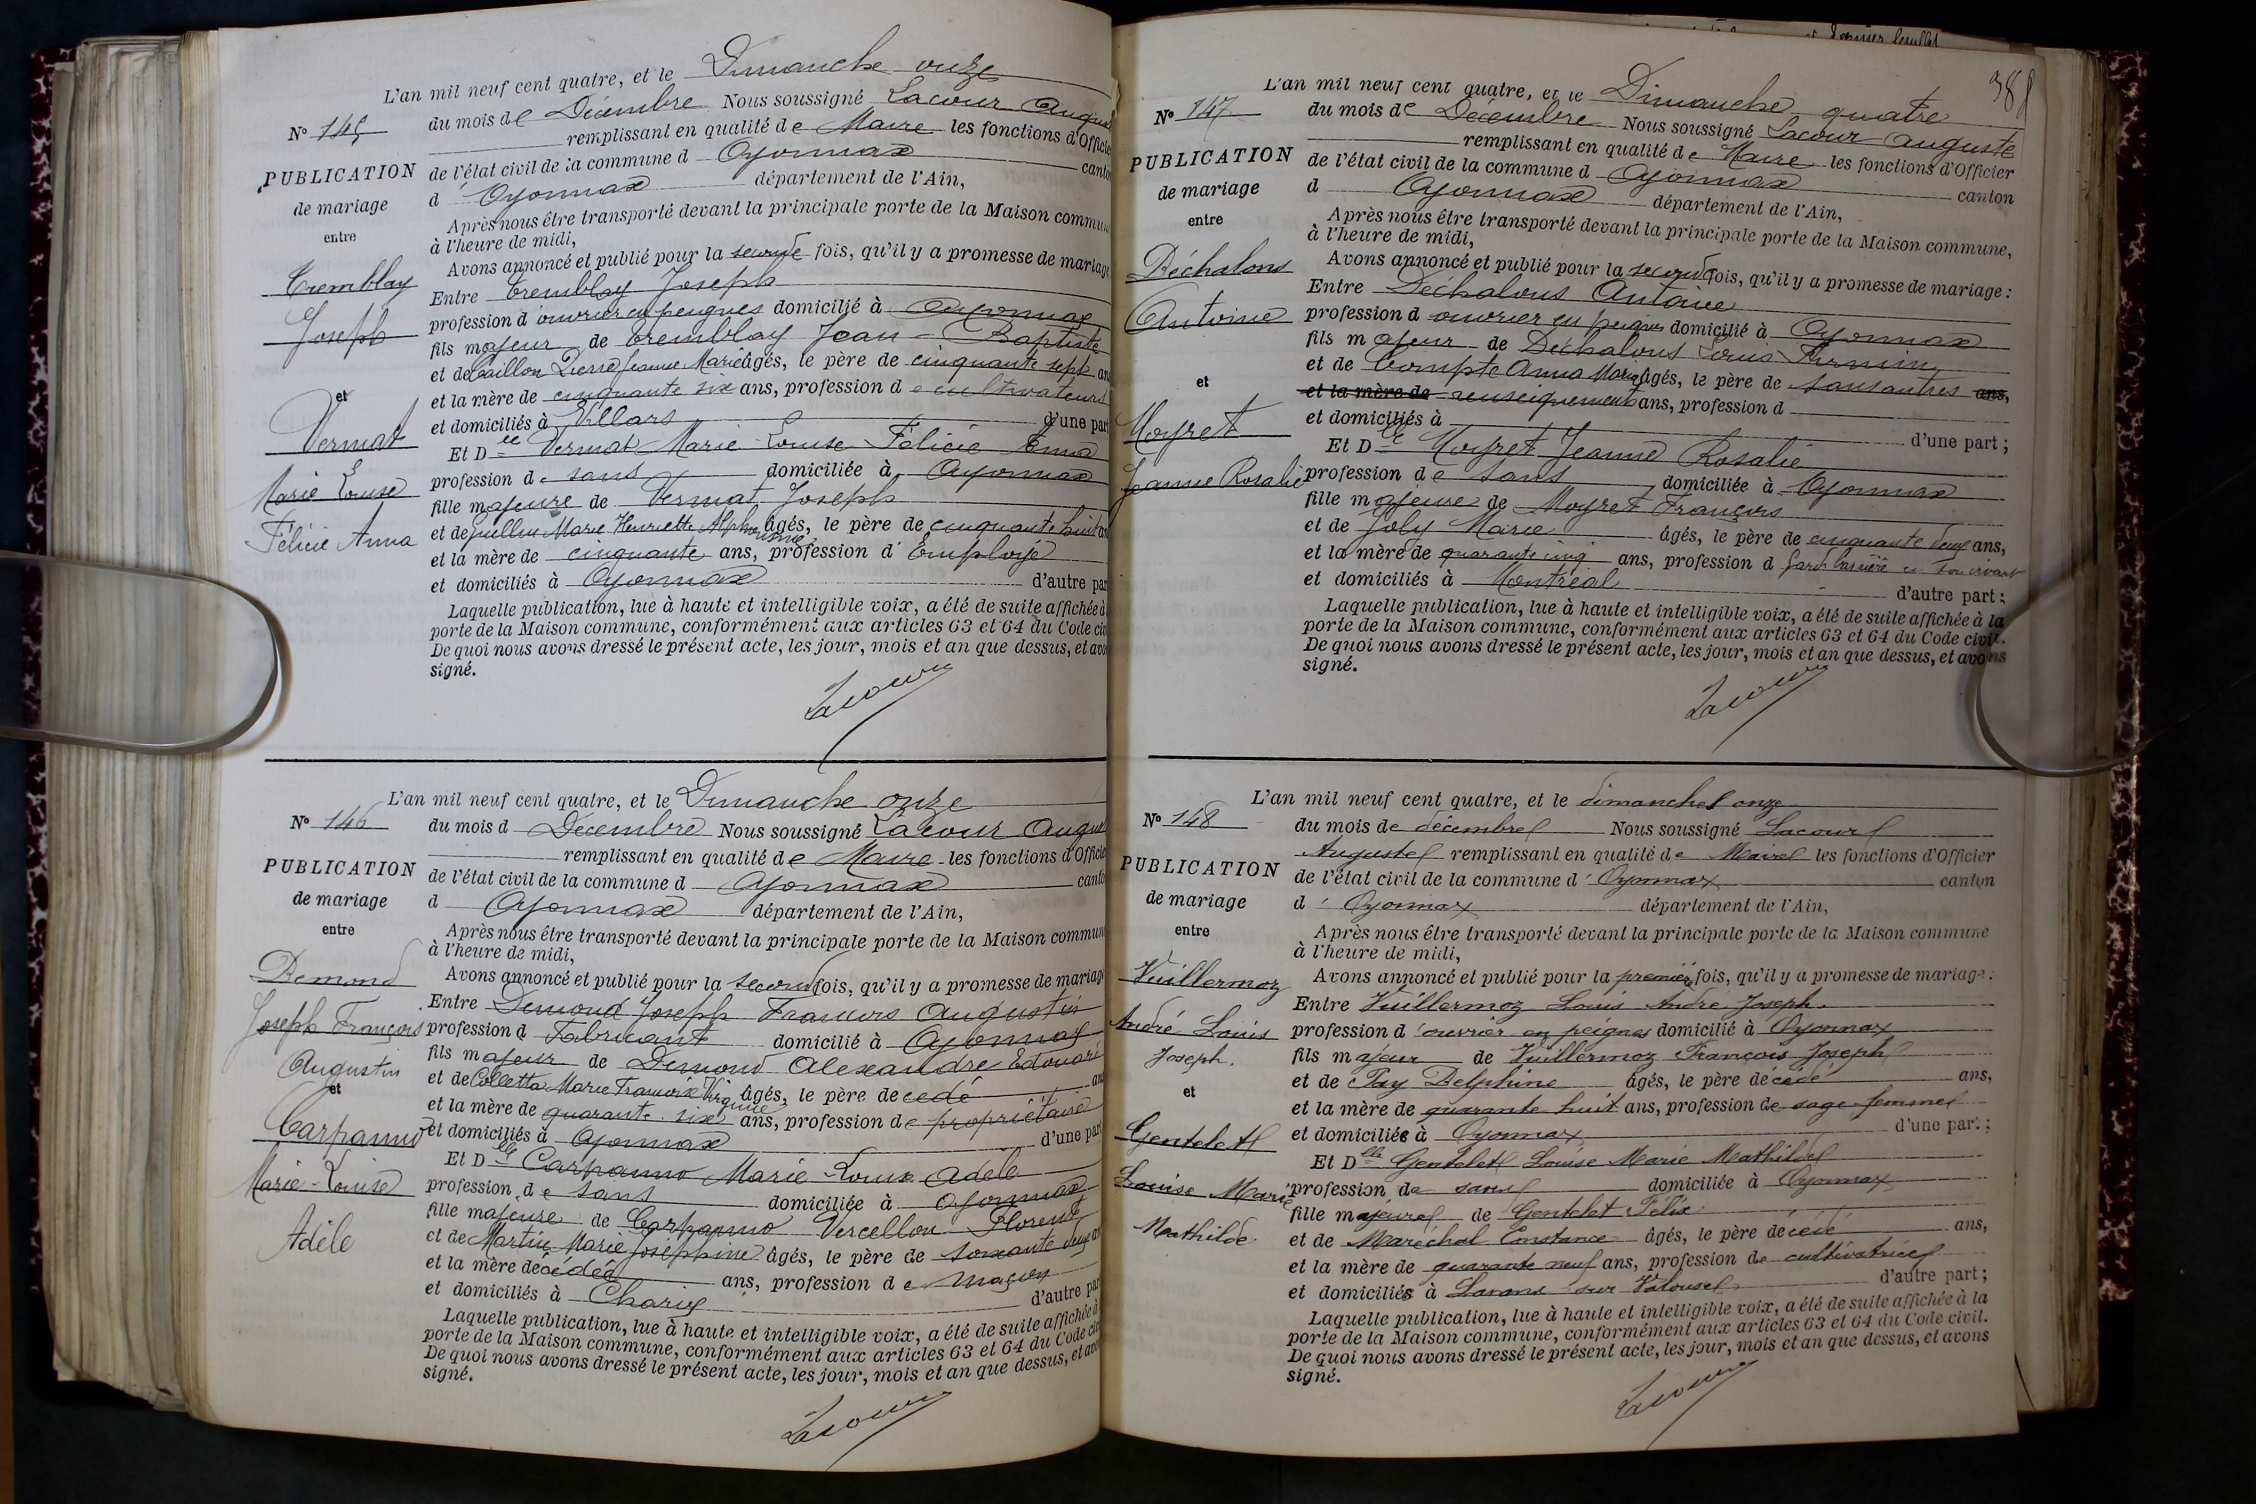 L'an mil neuf cent quatre, et le Dimanche onze
N° 145 du mois de Décembre Nous soussigné Lacour August
remplissant en qualité de Maire les fonctions d'Officie
PUBLICATION de l'état civil de la commune d Oyonnax canton
de mariage d' Oyonnax département de l'Ain,
entre Après nous être transporté devant la principale porte de la Maison commun
à l'heure de midi,
Avons annoncé et publié pour la seconde fois, qu'il y a promesse de mariage
Tremblay Entre Tremblay Joseph
Joseph profession d'ouvrier en peignes domicilié à Oyonnax
fils majeur de Tremblay Jean-Baptiste
et de Caillon Pierre Jeanne Marie âgés, le père de cinquante sept ans
et et la mère de cinquante six ans, profession de cultivateurs
Vermat et domiciliés à Villars d'une part
Et Delle Vermat Marie Louise Félicie Anna
Marie Louise profession de sans domiciliée à Oyonnax
fille majeure de Vermat Joseph
Félicie Anna et de Guillon Marie Henriette Alphonsine âgés, le père de cinquante huit ans
et la mère de cinquante ans, profession d' Employé
et domiciliés à Oyonnax d'autre par
Laquelle publication, lue à haute et intelligible voix, a été de suite affichée à
porte de la Maison commune, conformément aux articles 63 et 64 du Code civ
De quoi nous avons dressé le présent acte, les jour, mois et an que dessus, et avo
signé.
Lacour
L'an mil neuf cent quatre, et le Dimanche onze
N° 146 du mois d Decembre Nous soussigné Lacour August
remplissant en qualité de Maire les fonctions d'Officie
PUBLICATION de l'état civil de la commune d Oyonnax canto
de mariage d Oyonnax département de l'Ain,
entre Après nous être transporté devant la principale porte de la Maison commun
à l'heure de midi,
Demond Avons annoncé et publié pour la seconde fois, qu'il y a promesse de mariage
Entre Demond Joseph François Augustin
Joseph François profession d Fabricant domicilié à Oyonnax
Augustin fils majeur de Demond Alexandre Edouard
et et de Colletta Marie Françoise Virginie âgés, le père decedé ans
et la mère de quarante six ans, profession de propriétaire
Carpanno et domiciliés à Oyonnax d'une part
Et Delle Carpanno Marie Louise Adèle
Marie-Louise profession de sans domiciliée à Oyonnax
fille majeure de Carpanno Vercellon Florent
Adèle et de Martin Marie Joséphine âgés, le père de soixante deux ans
et la mère décédée ans, profession de maçon
et domiciliés à Charix d'autre par
Laquelle publication, lue à haute et intelligible voix, a été de suite affichée à
porte de la Maison commune, conformément aux articles 63 et 64 du Code civ
De quoi nous avons dressé le présent acte, les jour, mois et an que dessus, et avo
signé.
Lacour
388
L'an mil neuf cent quatre, et le Dimanche quatre
N° 147 du mois de Décembre Nous soussigné Lacour Auguste
remplissant en qualité de Maire les fonctions d'Officier
PUBLICATION de l'état civil de la commune d Oyonnax canton
de mariage d Oyonnax département de l'Ain,
entre Après nous être transporté devant la principale porte de la Maison commune,
à l'heure de midi,
Déchalons Avons annoncé et publié pour la seconde fois, qu'il y a promesse de mariage :
Entre Déchalons Antoine
Antoine profession d ouvrier en peignes domicilié à Oyonnax
fils majeur de Dechalons Louis Firmin
et de Compte Anna Marie âgés, le père de sans autres ans,
et et la mère de renseignements ans, profession d
Moyret et domiciliés à d'une part ;
Et Delle Moyret Jeanne Rosalie
Jeanne Rosalie profession de sans domiciliée à Oyonnax
fille majeure de Moyret François
et de Joly Marie âgés, le père de cinquante deux ans,
et la mère de quarante cinq ans, profession d
et domiciliés à Montréal d'autre part ;
Laquelle publication, lue à haute et intelligible voix, a été de suite affichée à la
porte de la Maison commune, conformément aux articles 63 et 64 du Code civil.
De quoi nous avons dressé le présent acte, les jour, mois et an que dessus, et avons
signé.
Lacour
L'an mil neuf cent quatre, et le dimanche onze
N° 148 du mois de décembre Nous soussigné Lacour
Auguste remplissant en qualité de Maire les fonctions d'Officier
PUBLICATION de l'état civil de la commune d' Oyonnax canton
de mariage d' Oyonnax département de l'Ain,
entre Après nous être transporté devant la principale porte de la Maison commune
à l'heure de midi,
Vuillermoz Avons annoncé et publié pour la première fois, qu'il y a promesse de mariage :
Entre Vuillermoz Louis André Joseph
André Louis profession d'ouvrier en peignes domicilié à Oyonnax
Joseph. fils majeur de Vuillermoz François Joseph
et de Pay Delphine âgés, le père décédé ans,
et et la mère de quarante huit ans, profession de sage-femme
Gentelet et domiciliée à Oyonnax d'une part ;
Et Delle Gentelet Louise Marie Mathilde
Louise Marie profession de sans domiciliée à Oyonnax
fille majeure de Gentelet Félix
Mathilde. et de Maréchal Constance âgés, le père décédé ans,
et la mère de quarante neuf ans, profession de cultivatrice
et domiciliés à Lavans sur Valouse d'autre part ;
Laquelle publication, lue à haute et intelligible voix, a été de suite affichée à la
porte de la Maison commune, conformément aux articles 63 et 64 du Code civil.
De quoi nous avons dressé le présent acte, les jour, mois et an que dessus, et avons
signé.
Lacour